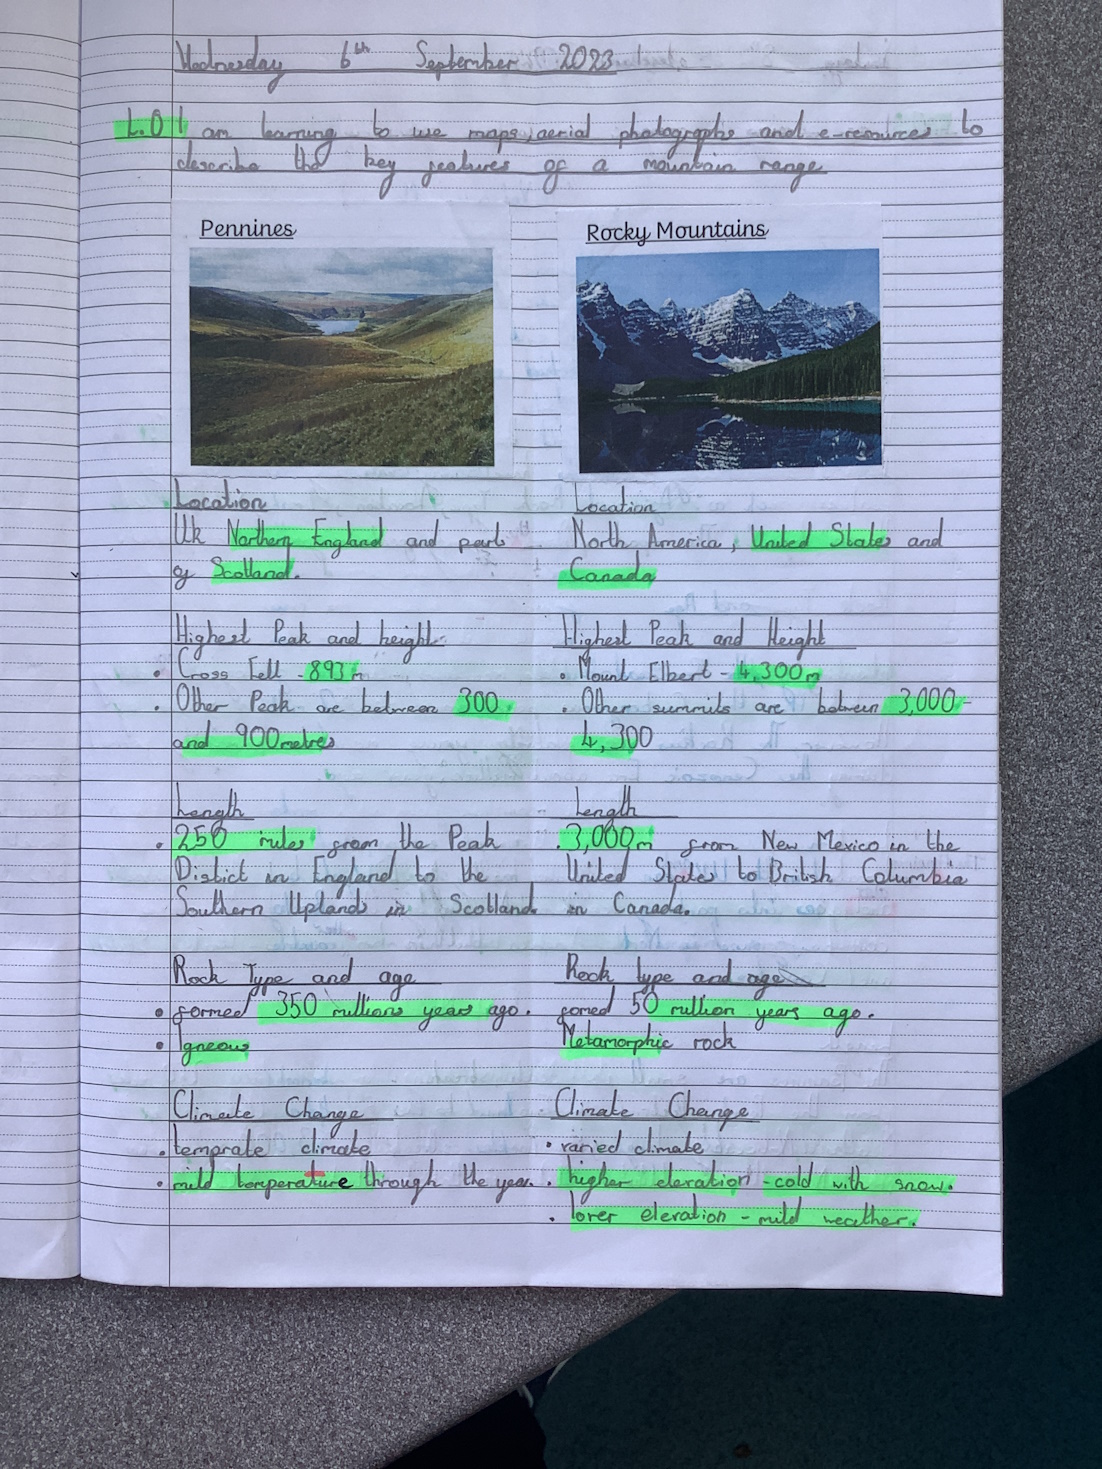 Wednesday 6th September 2023
L.O I am learning to use maps, aerial photographs and e-resources to
describe the key features of a mountain range
Pennines
Location
Uk Northern England and part
of Scotland.
Highest Peak and height
• Cross Fell - 893m
• Other Peak are between 300
and 900metres
Length
• 250 miles from the Peak
District in England to the
Southern Uplands in Scotland.
Rock Type and age
• formed 350 millions years ago.
• Igneous
Climate Change
• temprate climate
• mild temperature through the year.
Rocky Mountains
Location
North America, United States and
Canada
Highest Peak and Height
• Mount Elbert - 4,300m
• Other summits are between 3,000-
4,300
Length
• 3,000m from New Mexico in the
United States to British Columbia
in Canada.
Rock type and age
fomed 50 million years ago.
Metamorphic rock
Climate Change
• varied climate
• higher elevation - cold with snow.
• lower elevation - mild weather.